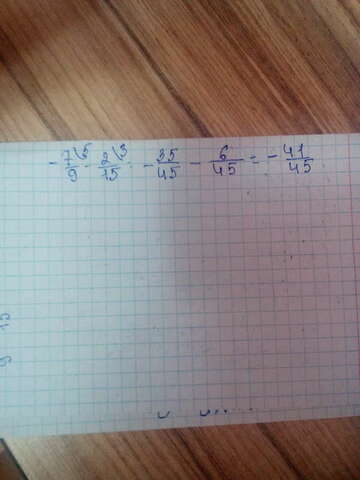 -7\5/9 - 2\3/15 = -35/45 - 6/45 = -41/45